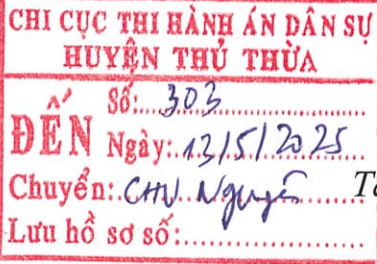 CHI CỤC THI HÀNH ÁN DÂN SỰ
HUYỆN THỦ THỪA
ĐẾN
Số: 303
Ngày: 13/5/2025
Chuyển: CHV Nguyên
Lưu hồ sơ số: